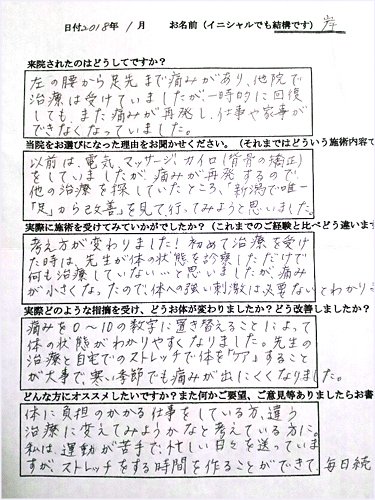 日付2018年 1月 お名前（イニシャルでも結構です） 岸
来院されたのはどうしてですか？
左の腰から足先まで痛みがあり、他院で
治療は受けていましたが、一時的に回復
しても、また痛みが再発し、仕事や家事が
できなくなっていました。
当院をお選びになった理由をお聞かせください。（それまではどういう施術内容で
以前は、電気、マッサージ、カイロ（背骨の矯正）
をしていましたが、痛みが再発するので、
他の治療を探していたところ、「新潟で唯一
「足」から改善」を見て、行ってみようと思いました。
実際に施術を受けてみていかがでしたか？（これまでのご経験と比べどう違います
考え方が変わりました！初めて治療を受け
た時は、先生が体の状態を診察しただけで
何も治療していない…と思いましたが、痛み
が小さくなったので、体への強い刺激は必要ないとわかり
実際どのような指摘を受け、どうお体が変わりましたか？どう改善しましたか？
痛みを0～10の数字に置き替えることによって
体の状態がわかりやすくなりました。先生の
治療と自宅でのストレッチで体を「ケア」すること
が大事で、寒い季節でも痛みが出にくくなりました。
どんな方にオススメしたいですか？また何かご要望、ご意見等ありましたらお書
体に負担のかかる仕事をしている方、違う
治療に変えてみようかなと考えている方に。
私は、運動が苦手で、忙しい日々を送っていま
すが、ストレッチをする時間を作ることができて、毎日続